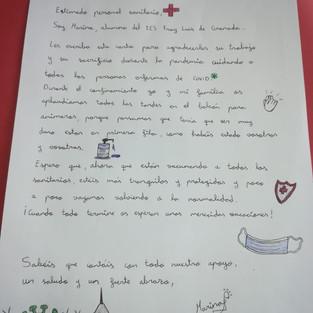 Estimado personal sanitario,
Soy Marina, alumna del IES Fray Luis de Granada.
Les escribo esta carta para agradecerles su trabajo
y su sacrificio durante la pandemia cuidando a
todas las personas enfermas de COVID
Durante el confinamiento yo y mi familia os
aplaudíamos todas las tardes en el balcón para
animaros, porque pensamos que tenía que ser muy
duro estar en primera fila, como habéis estado vosotros
y vosotras.
Espero que, ahora que están vacunando a todos los
sanitarios, estéis más tranquilos y protegidos y poco
a poco vayamos volviendo a la normalidad.
¡Cuando todo termine os esperan unas merecidas vacaciones!
Sabéis que contáis con todo nuestro apoyo,
un saludo y un fuerte abrazo,
Marina